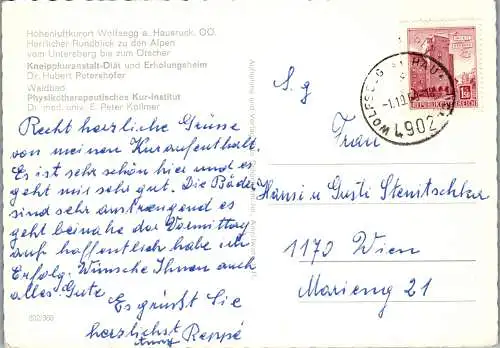 Höhenluftkurort Wolfsegg a. Hausruck, OÖ.
Herrlicher Rundblick zu den Alpen
vom Untersberg bis zum Ötscher
Kneippkuranstalt-Diät und Erholungsheim
Dr. Hubert Petershofer
Waldbad
Physikotherapeutisches Kur-Institut
Dr. med. univ. E. Peter Kollmer
Recht herzliche Grüsse
von meinem Kuraufenthalt.
Es ist sehr schön hier und es
geht mir sehr gut. Die Bäder
sind sehr anstrengend es
geht beinahe der Vormittag
auf hoffentlich habe ich
Erfolg. Wünsche Ihnen auch
alles Gute
Es grüßt Sie
herzlichst
Reppé
S. g
Frau
Hansi u Gusti Stenitschka
1170 Wien
Marieng 21
1.50
REPUBLIK ÖSTERREICH
WOLFSEGG HAU
4902